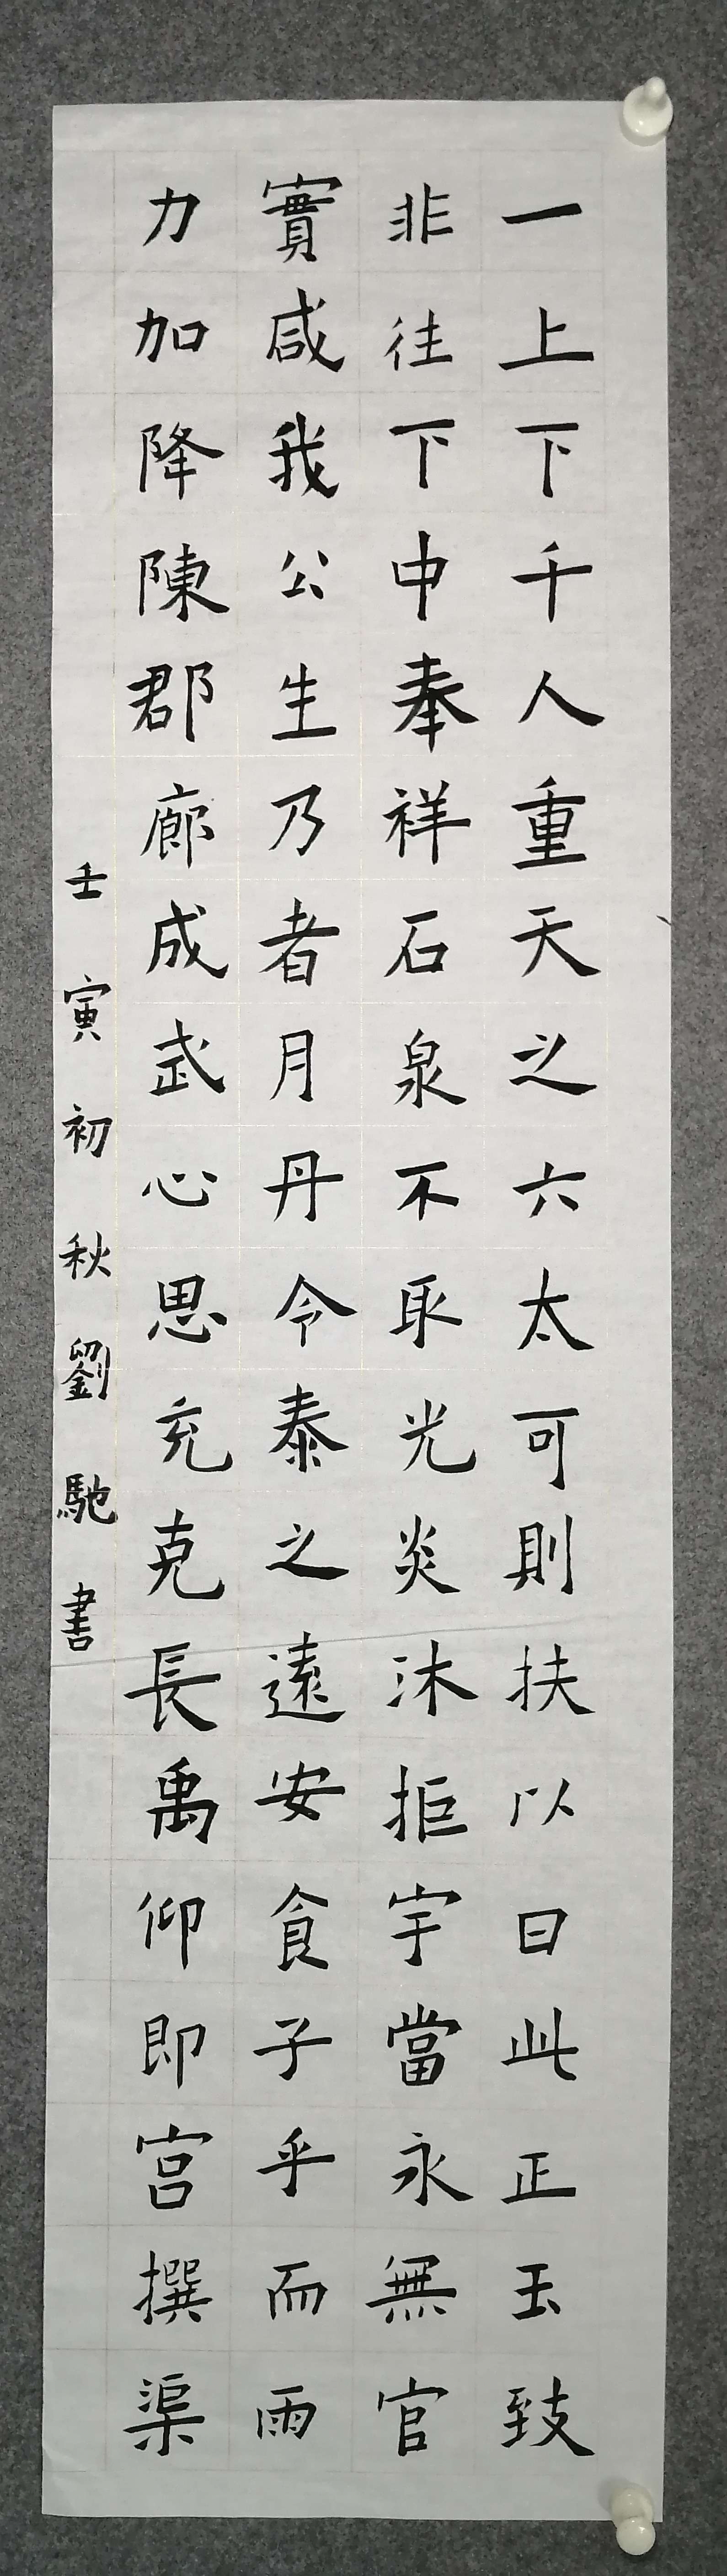 一上下千人重天之六太可則扶以曰此正玉致
非往下中奉祥石泉不取光炎沐拒宇當永無官
實咸我公生乃者月丹令泰之遠安食子乎而雨
力加降陳郡廊成武心思充克長禹仰即宮撰渠
壬寅初秋劉馳書